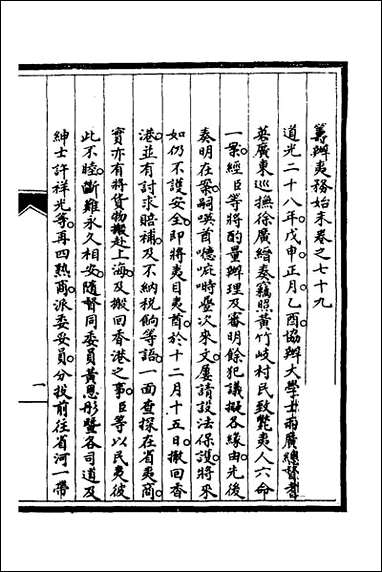 籌辦夷務始末卷之七十九
道光二十八年戊申正月乙酉協辦大學士兩廣總督耆
英廣東巡撫徐廣縉奏竊照黃竹岐村民致斃夷人六命
一案經臣等將酌量辦理及審明餘犯議擬各緣由先後
奏明在案嗣㗸酋噫庇時疊次來文屢請設法保護將來
如仍不護安全即將夷目夷酋於十二月十五日撤回香
港並有討求賠補及不納稅餉等語一面查探在省夷商
實亦有將貨物搬赴上海及搬回香港之事臣等以民夷彼
此不睦斷難永久相安隨督同委員黃恩彤暨各司道及
紳士許祥光等再四熟商派委妥員分投前往省河一帶
一